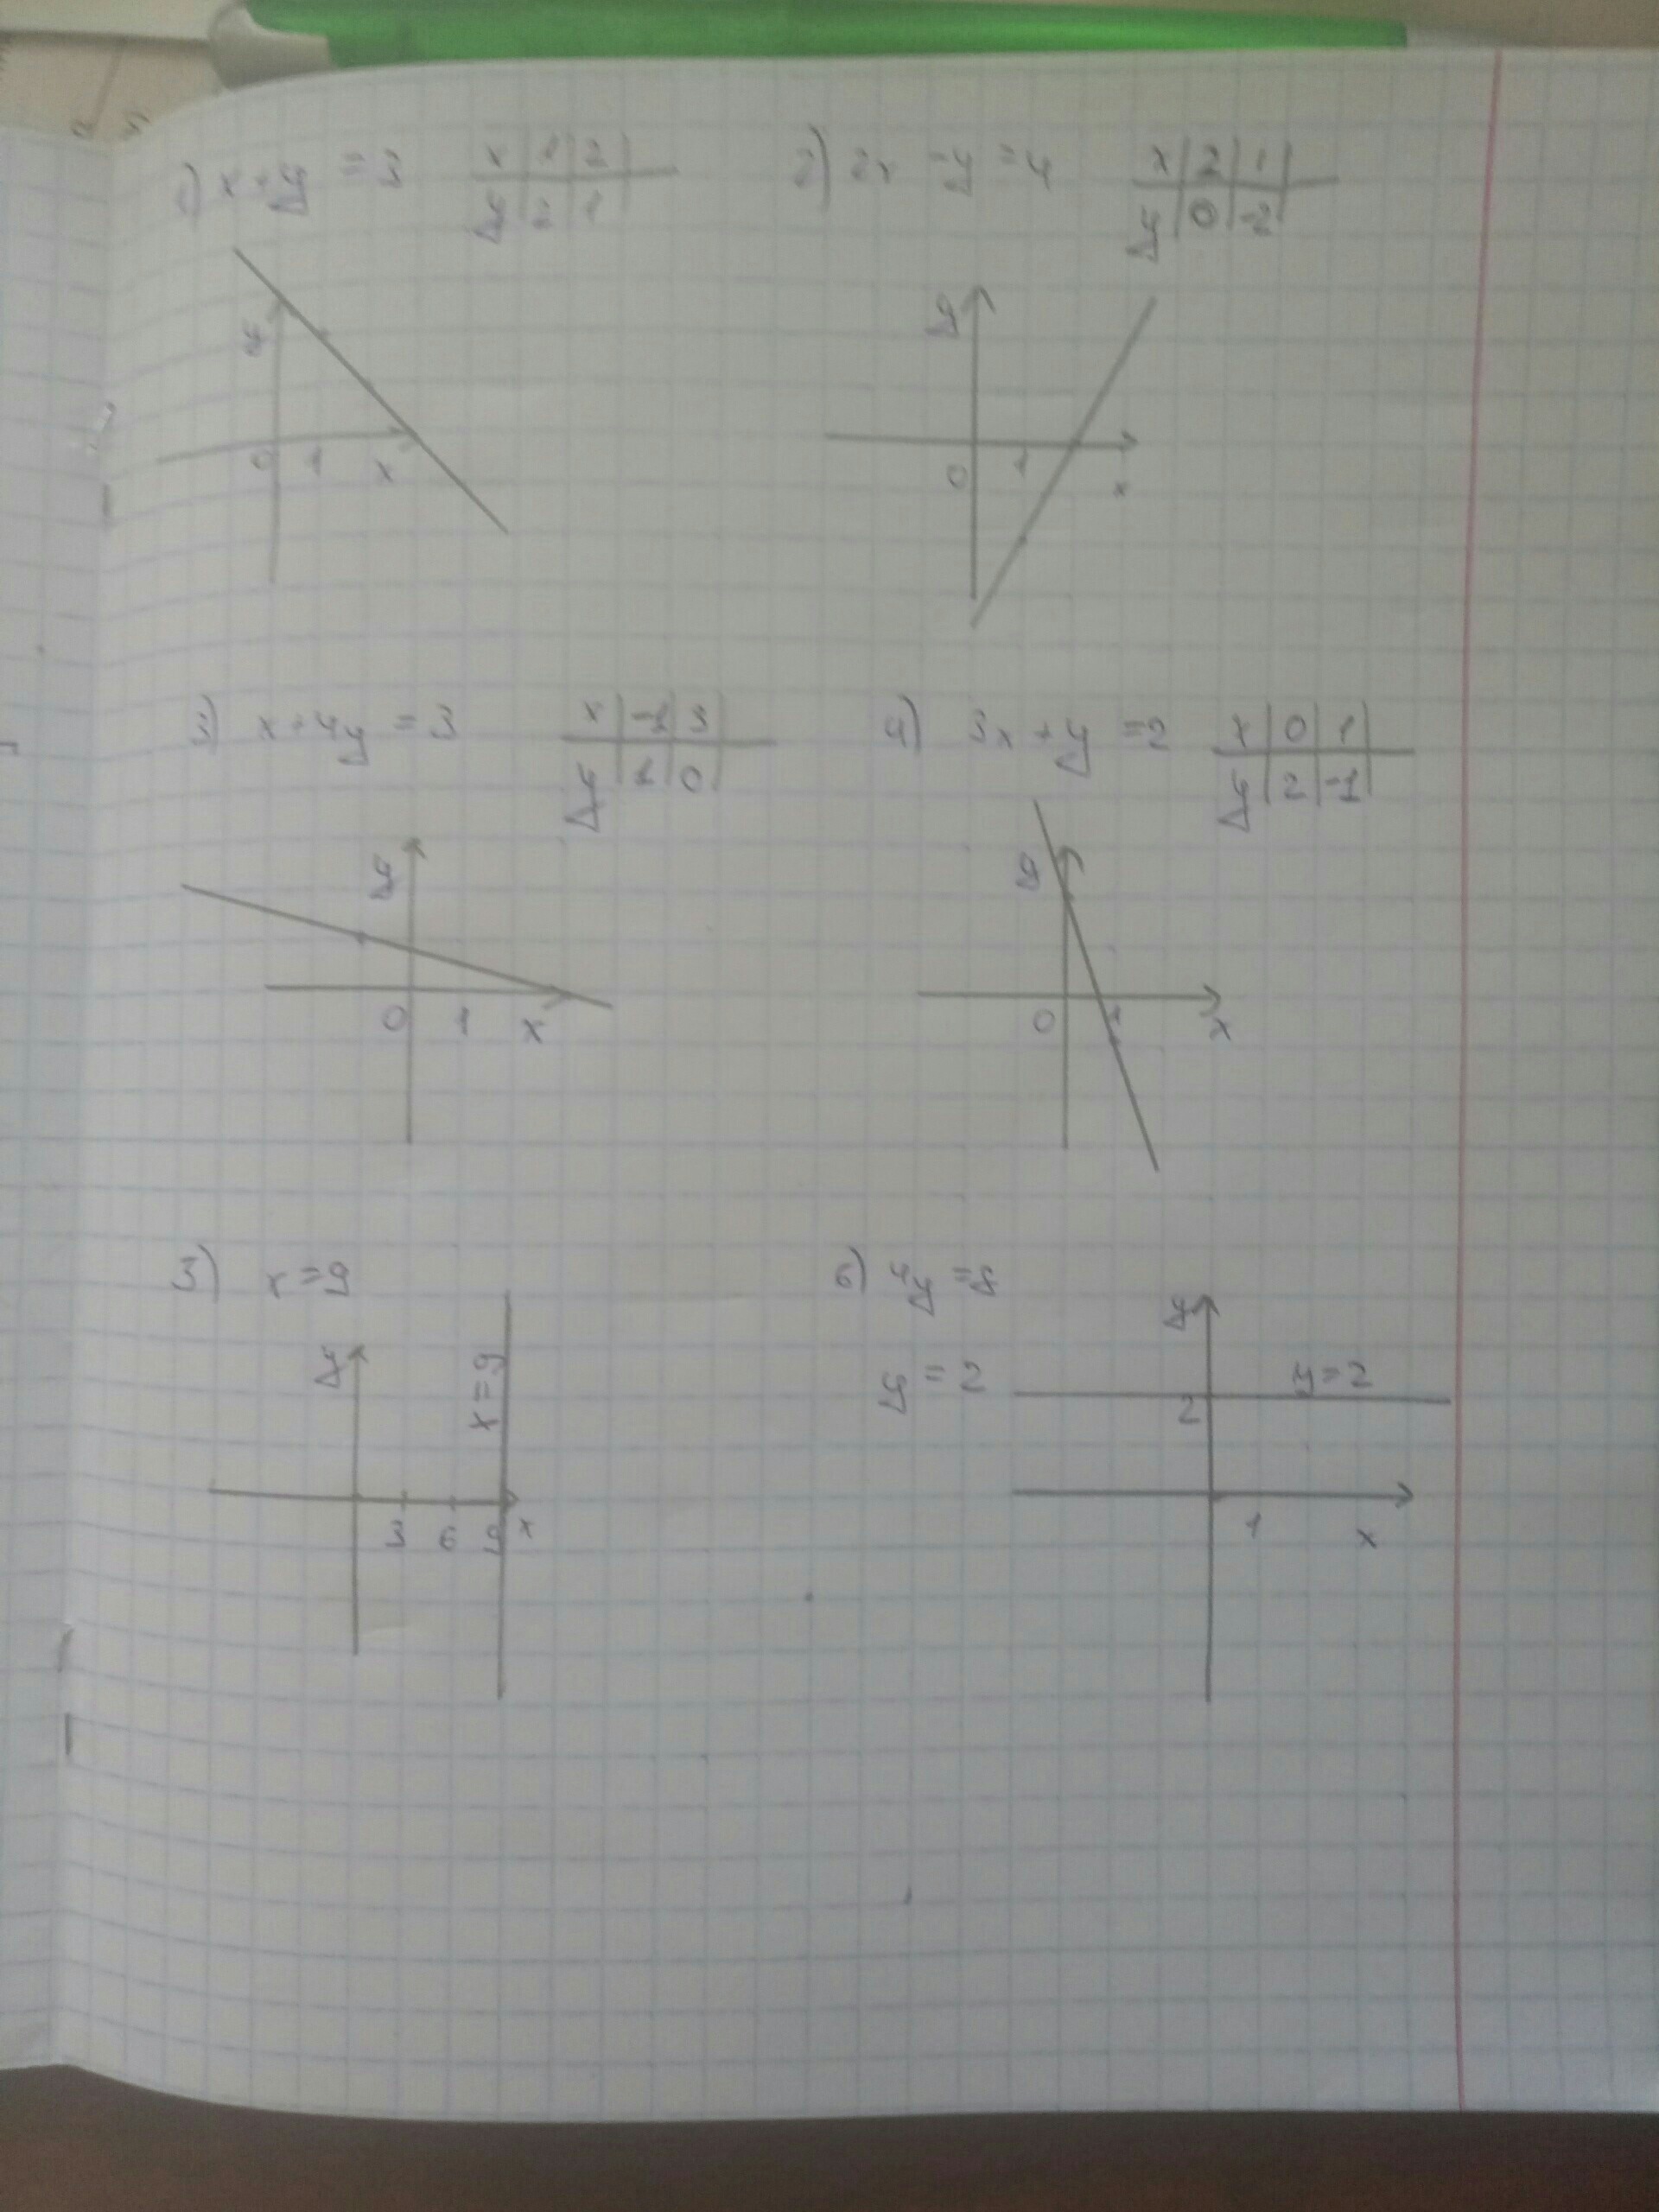 1) x+y = 3
x 1 2
y 2 1
2) 2x -y =4
x 2 1
y 0 -2
y
0 1 x
y
0 1 x
3) x+4y = 3
x -1 3
y 1 0
4) 3x+y =2
x 0 1
y 2 -1
y
0 1 x
y
0 1 x
5) x=9
y
x=9
3 6 9 x
6) 4y =8
y = 2
y
y=2
2
1 x